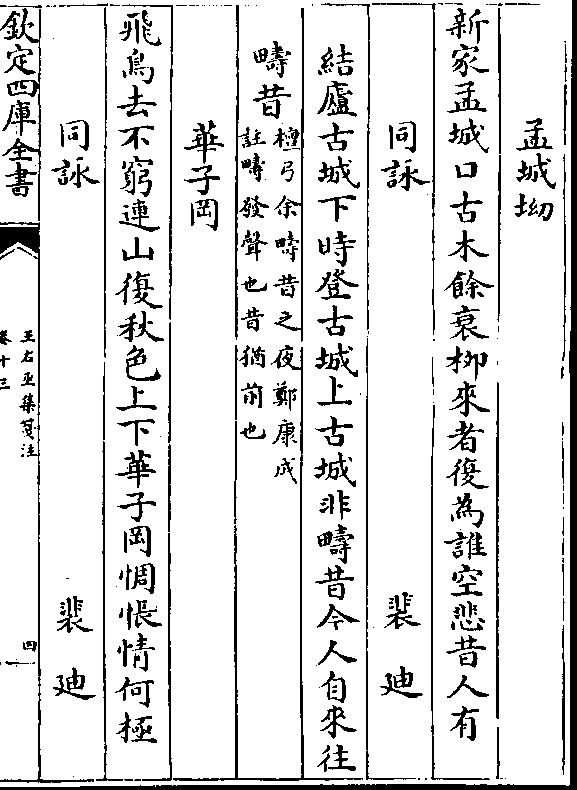 孟城坳
新家孟城口古木餘衰柳來者復為誰空悲昔人有
同詠 裴廸
結廬古城下時登古城上古城非疇昔今人自來往
疇昔檀弓余疇昔之夜鄭康成
註疇發聲也昔猶前也
華子岡
飛鳥去不窮連山復秋色上下華子岡惆悵情何極
同詠 裴廸
欽定四庫全書
王右丞集箋注
卷十三
四